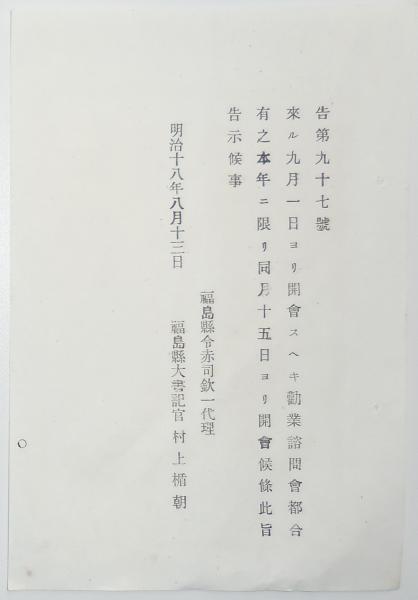 告第九十七號
來ル九月一日ヨリ開會スヘキ勸業諮問會都合
有之本年ニ限リ同月十五日ヨリ開會候條此旨
告示候事
福島縣令赤司欽一代理
明治十八年八月十三日
福島縣大書記官村上楯朝